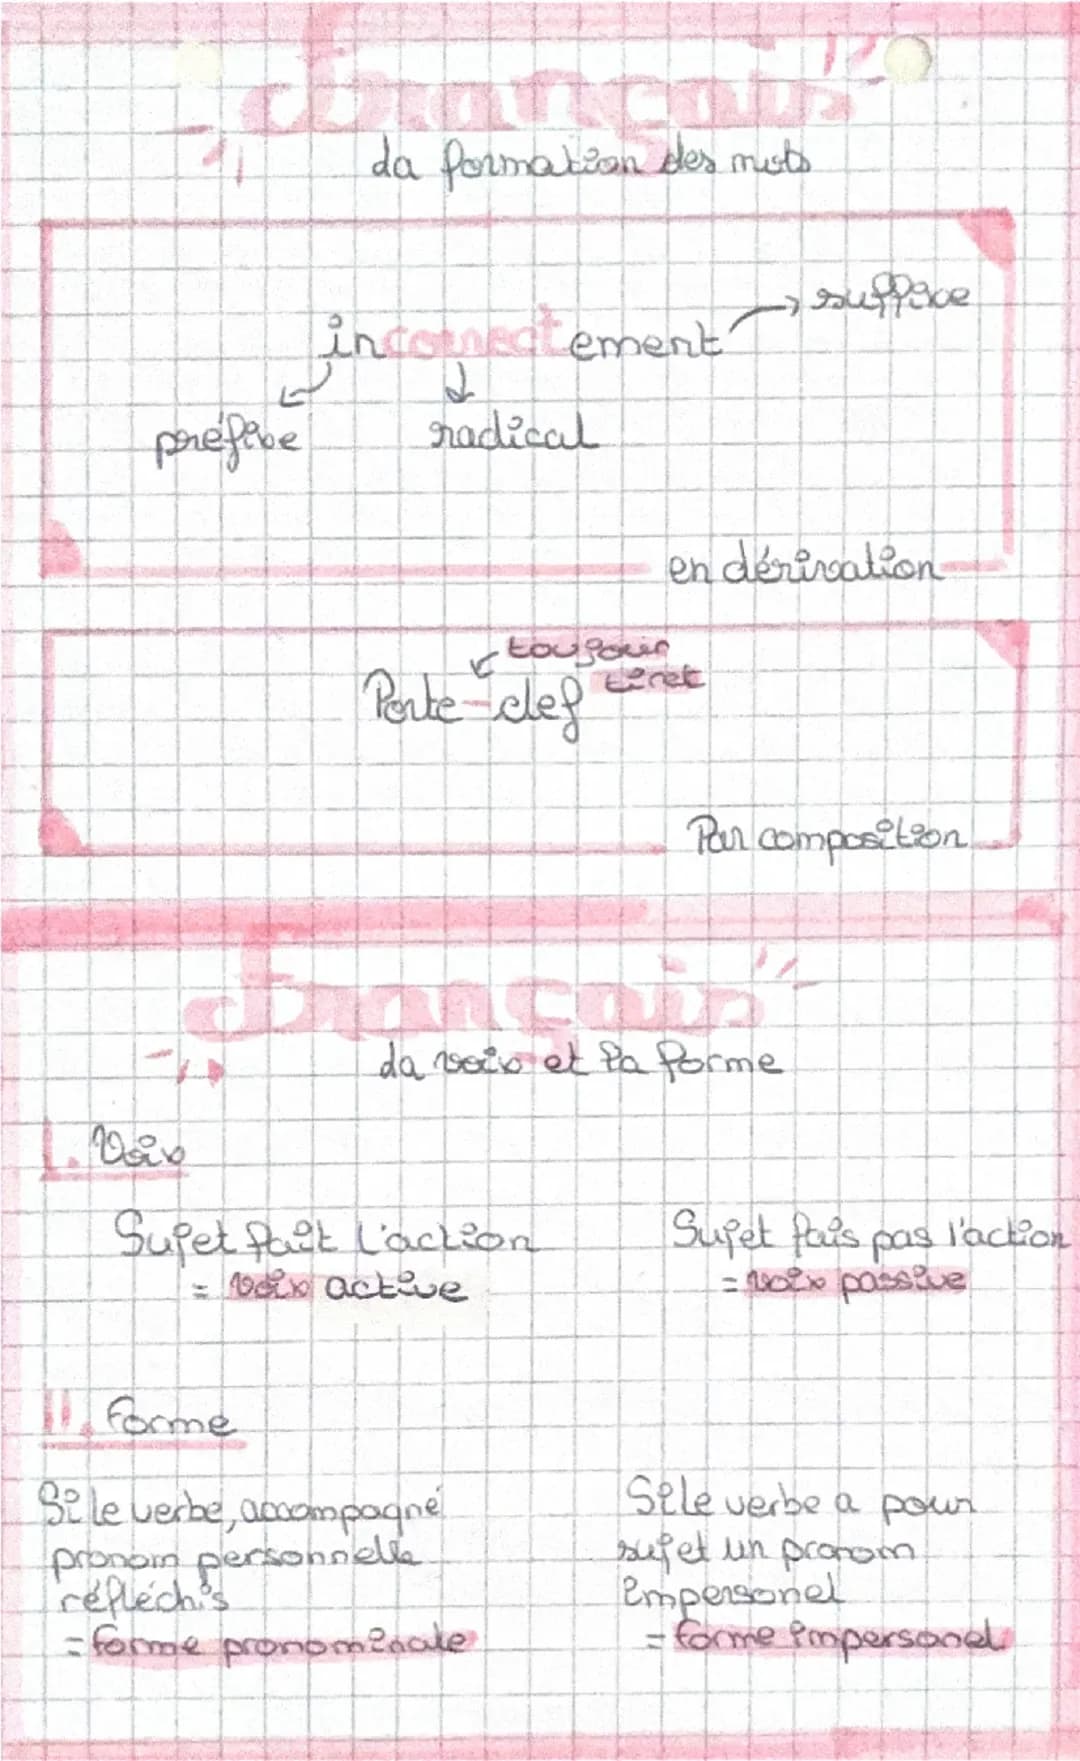 Français
La formation des mots
suffixe
incorrectement
préfixe
radical
en dérivation
toujour
tiret
Porte-clef
Par composition
Français
La voix et la forme
I. Voix
Sujet fait l'action
= voix active
Sujet fais pas l'action
= voix passive
II. forme
Si le verbe, accompagné
pronom personnelle
réfléchis
= forme pronominale
Si le verbe a pour
sujet un pronom
impersonel
= forme impersonel